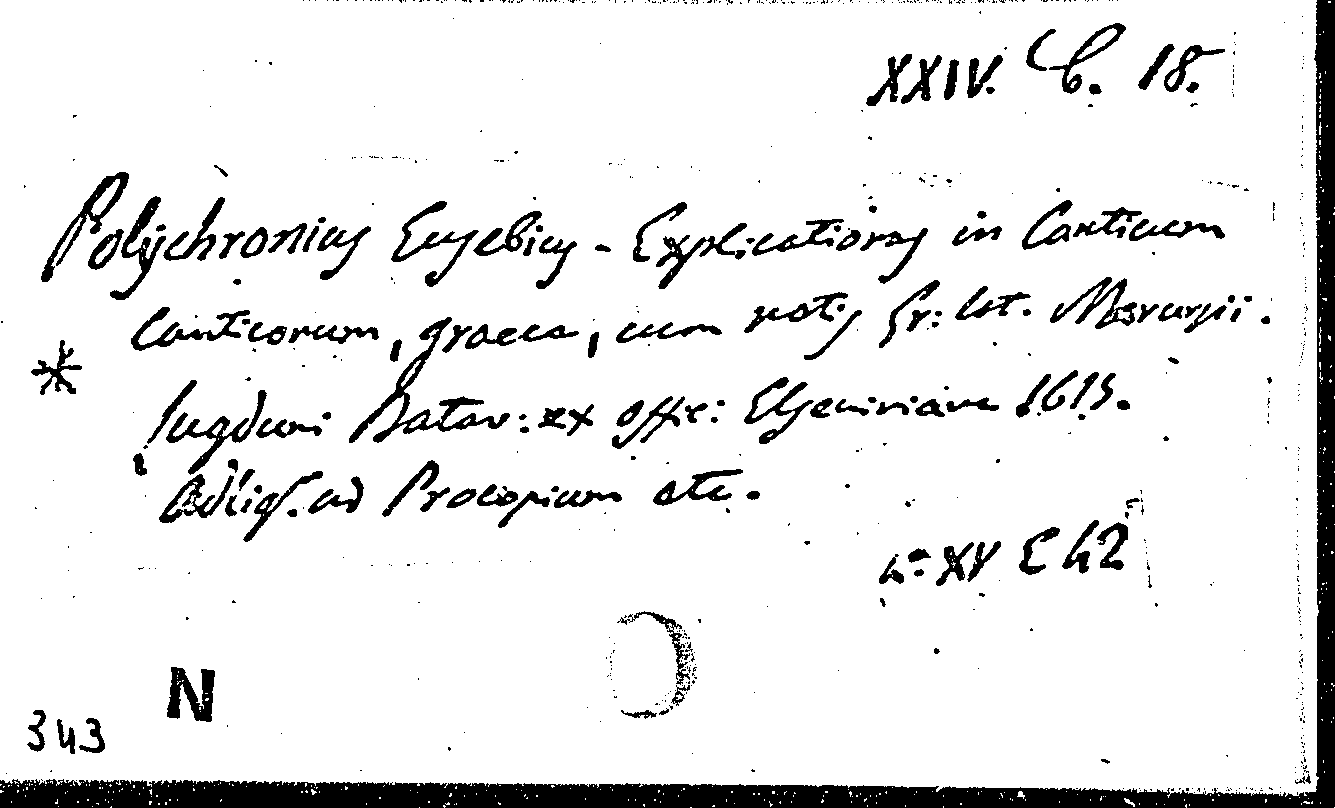 XXIV. C. 18.
Polychronius Eusebius - Explicationes in Canticum
Canticorum, graece, cum notis gr: lat. Meursii.
* Lugduni Batav: ex offic: Elzeviriana 1615.
Adlig. ad Procopium etc.
4° XV E 42
N
343